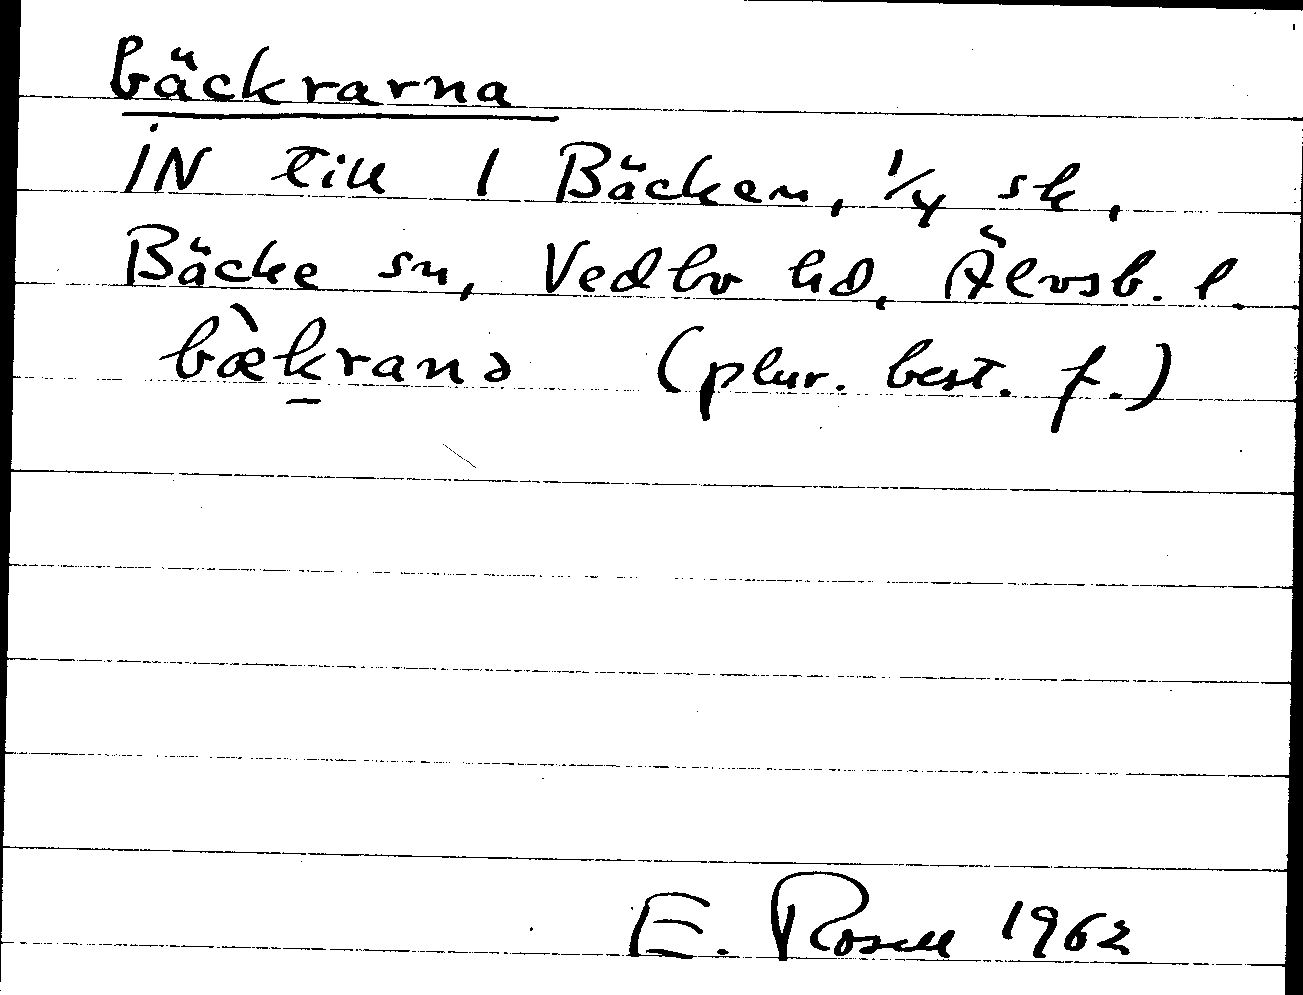 bäckrarna
iN till 1 Bäcken, 1/4 sk,
Bäcke sn, Vedbo hd, Älvsb. l.
bæ̀k̠ranə (plur. best. f.)
E. Rosell 1962